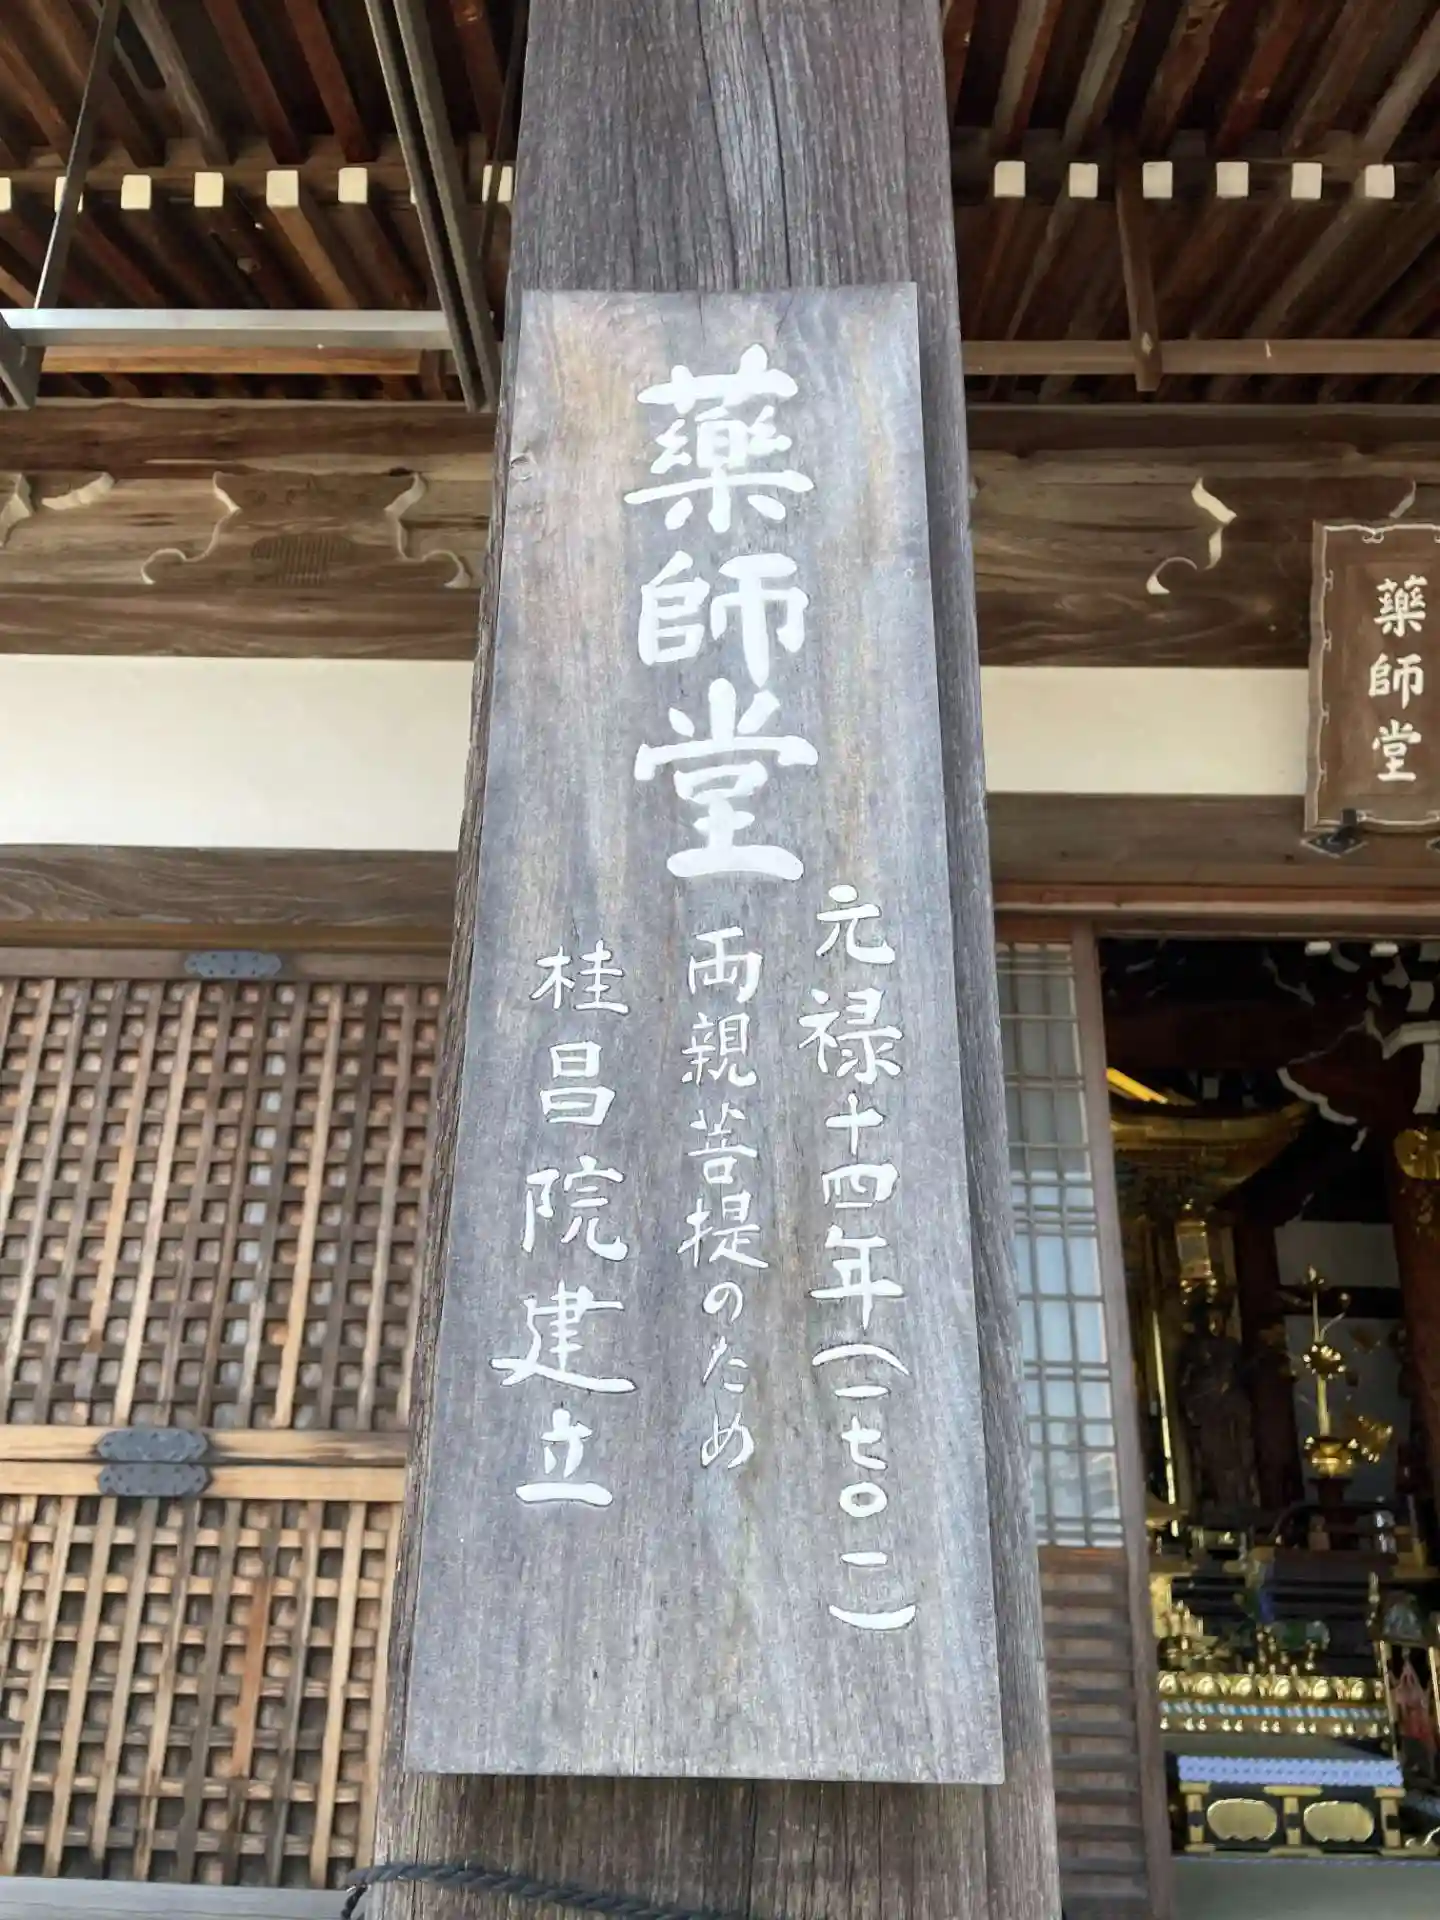 藥師堂
元禄十四年(一七〇二)
両親菩提のため
桂昌院建立
藥師堂